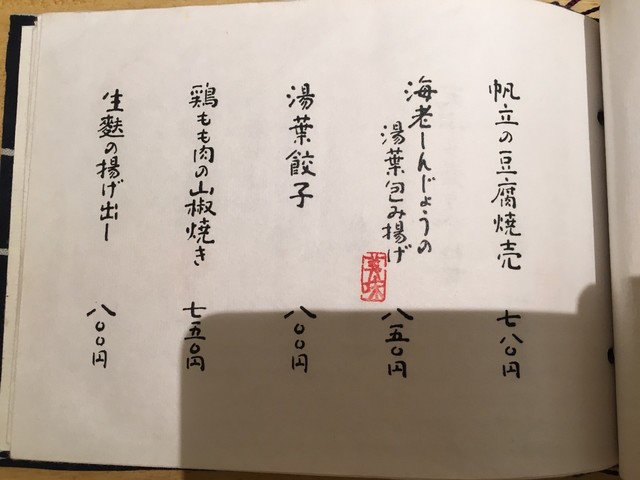 帆立の豆腐焼売
七八〇円
海老しんじょうの
湯葉包み揚げ
美味
八五〇円
湯葉餃子
八〇〇円
鶏もも肉の山椒焼き
七五〇円
生麩の揚げ出し
八〇〇円